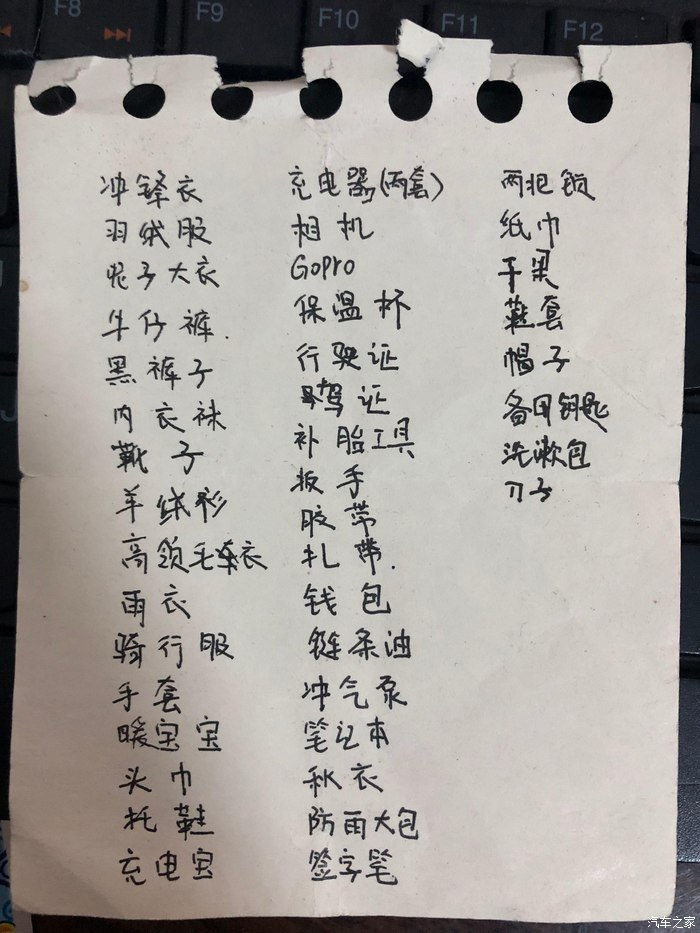 F8
F9
F10
F11
F12
冲锋衣
羽绒服
呢子大衣
牛仔裤.
黑裤子
内衣袜
靴子
羊绒衫
高领毛衣
雨衣
骑行服
手套
暖宝宝
头巾
托鞋
充电宝
充电器(两套)
相机
Gopro
保温杯
行驶证
驾证
补胎工具
扳手
胶带
扎带.
钱包
链条油
冲气泵
笔记本
秋衣
防雨大包
签字笔
两把锁
纸巾
干果
鞋套
帽子
备用钥匙
洗漱包
刀子
汽车之家